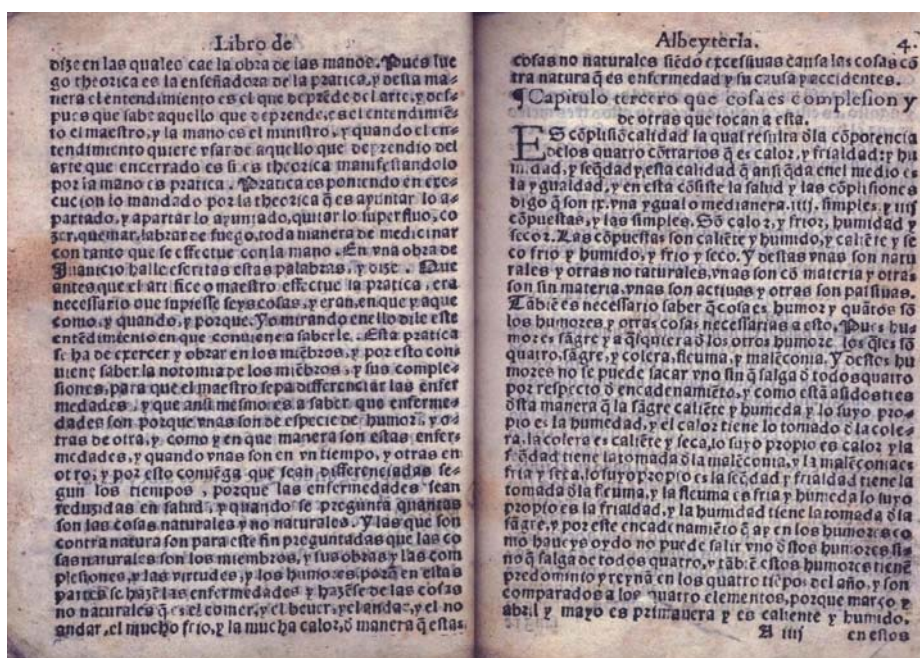 Libro de
dize en las quales cae la obra de las manos. Pues lue
go theorica es la enseñadora de la pratica, y desta ma=
nera el entendimiento es el que deprēde del arte, y des=
pues que sabe aquello que deprende, es el entendimiē=
to el maestro, y la mano es el ministro, y quando el en=
tendimiento quiere vsar de aquello que deprendio del
arte que encerrado es si es theorica manifestandolo
por la mano es pratica. Pratica es poniendo en exe=
cucion lo mandado por la theorica q̄ es ayuntar lo a=
partado, y apartar lo ayuntado, quitar lo superfluo, co
zer, quemar, labrar de fuego, toda manera de medicinar
con tanto que se effectue con la mano. En vna obra de
halle escritas estas palabras, y dize. Que
antes que el artifice o maestro effectue la pratica, era
necessario que supiesse seys cosas, y eran, en que y aque
como, y quando, y porque. Yo mirando en ello dile este
entēdimiento en que conuiene a saberle. Esta pratica
se ha de exercer y obrar en los miēbros, y por esto con
uiene saber la notomia de los miēbros, y sus comple=
siones, para que el maestro sepa differenciar las enfer
medades, y que ansi mesmo es a saber que enferme=
dades son porque vnas son de especie de humor, y o=
tras de otra, y como y en que manera son estas enfer=
medades, y quando vnas son en vn tiempo, y otras en
otro, y por esto conuēga que sean differenciadas se=
gun los tiempos, porque las enfermedades sean
reduzidas en salud, y quando se pregunta quantas
son las cosas naturales y no naturales. Y las que son
contra natura son para este fin preguntadas que las co
sas naturales son los miembros, y sus obras y las com
plesiones, y las virtudes, y los humores, porq̄ en estas
partes se hazē las enfermedades y hazēse de las cosas
no naturales q̄ es el comer, y el beuer, y el andar, y el no
andar, el mucho frio, y la mucha calor, d̄ manera q̄ estas
Albeyteria. 4.
cosas no naturales siēdo excessiuas causa las cosas cō
tra natura q̄ es enfermedad y su causa y accidentes.
¶ Capitulo tercero que cosa es complesion y
de otras que tocan a esta.
ES cōplisiō calidad la qual resulta d̄la cōpotencia
de los quatro cōtrarios q̄ es calor, y frialdad: y hu
midad, y seq̄dad y esta calidad q̄ ansi q̄da en el medio es
la ygualdad, y en esta cōsiste la salud y las cōplisiones
digo q̄ son ix. vna ygual o medianera. iiij. simples, y iiij
cōpuestas, y las simples. Sō calor, y frior, humidad y
secor. Las cōpuestas son caliēte y humido, y caliēte y se
co frio y humido, y frio y seco. Y destas vnas son natu
rales y otras no naturales, vnas son cō materia y otras
son sin materia, vnas son actiuas y otras son passiuas.
Tābiē es necessario saber q̄ cosa es humor y quātos sō
los humores y otras cosas necessarias a esto. Pues hu
mores sāgre y a q̄lquiera d̄ los otros humores los q̄les sō
quatro, sāgre, y colera, fleuma, y malēconia. Y destos hu
mores no se puede sacar vno sin q̄ salga d̄ todos quatro
por respecto d̄ encadenamiēto, y como estā asidos ties
d̄sta manera q̄ la sāgre caliēte y humeda y lo suyo pro=
pio es la humedad, y el calor tiene lo tomado d̄ la cole=
ra, la colera es caliēte y seca, lo suyo propio es calor y la
seq̄dad tiene la tomada d̄ la malēconia, y la malēconia es
fria y seca, lo suyo propio es la seq̄dad y frialdad tiene la
tomada d̄la fleuma, y la fleuma es fria y humeda lo suyo
propio es la frialdad, y la humidad tiene la tomada d̄la
sāgre, y por este encadenamiēto q̄ ay en los humores co
mo haueys oydo no puede salir vno d̄stos humores si=
no q̄ salga de todos quatro, y tābiē estos humores tienē
predominio y reynā en los quatro tiēpos del año, y son
comparados a los quatro elementos, porque março y
abril y mayo es primauera y es caliente y humido.
A iiij en estos